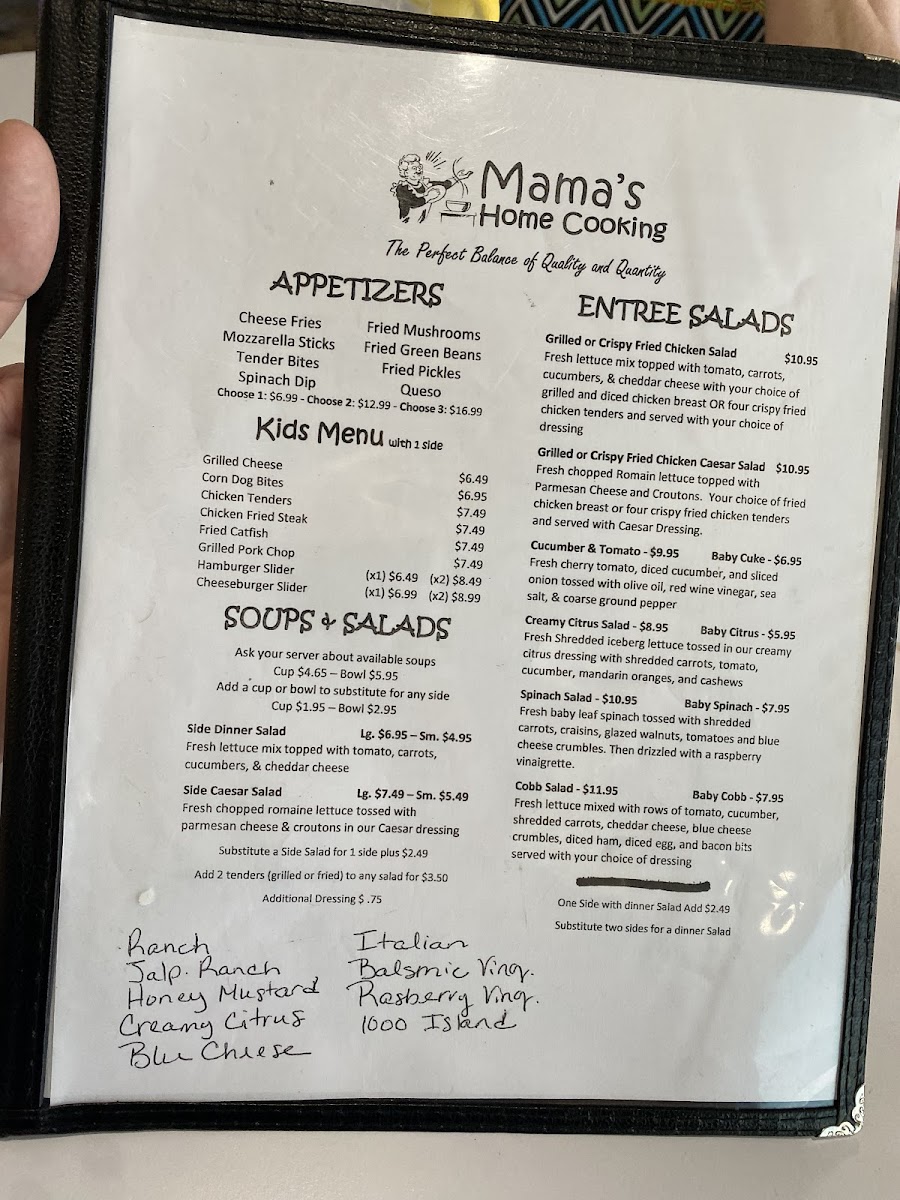 Mama's
Home Cooking
The Perfect Balance of Quality and Quantity
APPETIZERS
Cheese Fries
Mozzarella Sticks
Tender Bites
Spinach Dip
Fried Mushrooms
Fried Green Beans
Fried Pickles
Queso
Choose 1: $6.99 - Choose 2: $12.99 - Choose 3: $16.99
Kids Menu with 1 side
Grilled Cheese $6.49
Corn Dog Bites $6.95
Chicken Tenders $7.49
Chicken Fried Steak $7.49
Fried Catfish $7.49
Grilled Pork Chop $7.49
Hamburger Slider (x1) $6.49 (x2) $8.49
Cheeseburger Slider (x1) $6.99 (x2) $8.99
SOUPS & SALADS
Ask your server about available soups
Cup $4.65 – Bowl $5.95
Add a cup or bowl to substitute for any side
Cup $1.95 – Bowl $2.95
Side Dinner Salad Lg. $6.95 – Sm. $4.95
Fresh lettuce mix topped with tomato, carrots,
cucumbers, & cheddar cheese
Side Caesar Salad Lg. $7.49 – Sm. $5.49
Fresh chopped romaine lettuce tossed with
parmesan cheese & croutons in our Caesar dressing
Substitute a Side Salad for 1 side plus $2.49
Add 2 tenders (grilled or fried) to any salad for $3.50
Additional Dressing $ .75
ENTREE SALADS
Grilled or Crispy Fried Chicken Salad $10.95
Fresh lettuce mix topped with tomato, carrots,
cucumbers, & cheddar cheese with your choice of
grilled and diced chicken breast OR four crispy fried
chicken tenders and served with your choice of
dressing
Grilled or Crispy Fried Chicken Caesar Salad $10.95
Fresh chopped Romain lettuce topped with
Parmesan Cheese and Croutons. Your choice of fried
chicken breast or four crispy fried chicken tenders
and served with Caesar Dressing.
Cucumber & Tomato - $9.95 Baby Cuke - $6.95
Fresh cherry tomato, diced cucumber, and sliced
onion tossed with olive oil, red wine vinegar, sea
salt, & coarse ground pepper
Creamy Citrus Salad - $8.95 Baby Citrus - $5.95
Fresh Shredded iceberg lettuce tossed in our creamy
citrus dressing with shredded carrots, tomato,
cucumber, mandarin oranges, and cashews
Spinach Salad - $10.95 Baby Spinach - $7.95
Fresh baby leaf spinach tossed with shredded
carrots, craisins, glazed walnuts, tomatoes and blue
cheese crumbles. Then drizzled with a raspberry
vinaigrette.
Cobb Salad - $11.95 Baby Cobb - $7.95
Fresh lettuce mixed with rows of tomato, cucumber,
shredded carrots, cheddar cheese, blue cheese
crumbles, diced ham, diced egg, and bacon bits
served with your choice of dressing
One Side with dinner Salad Add $2.49
Substitute two sides for a dinner Salad
Ranch
Jalp. Ranch
Honey Mustard
Creamy Citrus
Blu Cheese
Italian
Balsmic Ving.
Rasberry Ving.
1000 Island